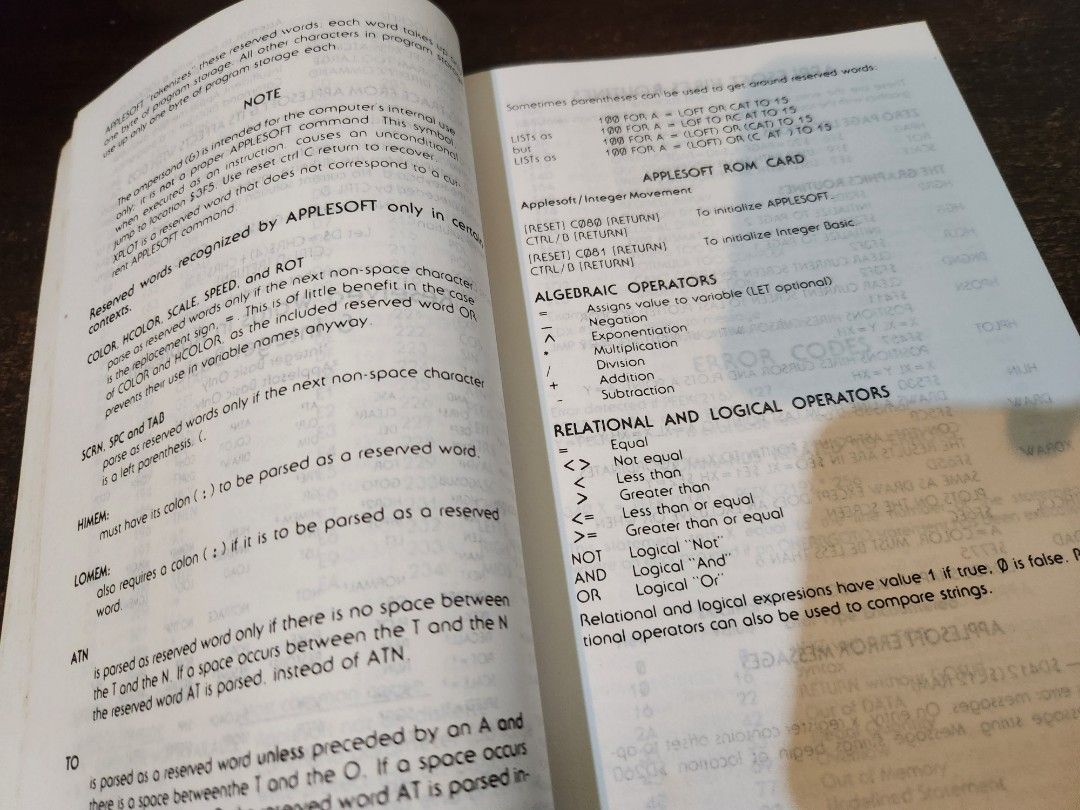 APPLESOFT "tokenizes" these reserved words; each word takes up
one byte of program storage. All other characters in program storage
use up only one byte of program storage each.
NOTE
The ampersand (&) is intended for the computer's internal use
only; it is not a proper APPLESOFT command. This symbol,
when executed as an instruction, causes an unconditional
jump to location $3F5. Use reset ctrl C return to recover.
XPLOT is a reserved word that does not correspond to a cur-
rent APPLESOFT command.
Reserved words recognized by APPLESOFT only in certain
contexts.
COLOR, HCOLOR, SCALE, SPEED, and ROT
parse as reserved words only if the next non-space character
is the replacement sign, =. This is of little benefit in the case
of COLOR and HCOLOR, as the included reserved word OR
prevents their use in variable names anyway.
SCRN, SPC and TAB
parse as reserved words only if the next non-space character
is a left parenthesis, (.
HIMEM:
must have its colon ( : ) to be parsed as a reserved word.
LOMEM:
also requires a colon ( : ) if it is to be parsed as a reserved
word.
ATN
is parsed as reserved word only if there is no space between
the T and the N. If a space occurs between the T and the N
the reserved word AT is parsed, instead of ATN.
TO
is parsed as a reserved word unless preceded by an A and
there is a space betweenthe T and the O. If a space occurs
reserved word AT is parsed in-
Sometimes parentheses can be used to get around reserved words:
100 FOR A = LOFT OR CAT TO 15
LISTs as 100 FOR A = LOF TO RC AT TO 15
but 100 FOR A = (LOFT) OR (CAT) TO 15
LISTs as 100 FOR A = (LOFT) OR (C AT ) TO 15
APPLESOFT ROM CARD
Applesoft/Integer Movement
[RESET] C080 [RETURN] To initialize APPLESOFT.
CTRL/B [RETURN]
[RESET] C081 [RETURN] To initialize Integer Basic.
CTRL/B [RETURN]
ALGEBRAIC OPERATORS
= Assigns value to variable (LET optional)
— Negation
^ Exponentiation
* Multiplication
/ Division
+ Addition
- Subtraction
RELATIONAL AND LOGICAL OPERATORS
= Equal
<> Not equal
< Less than
> Greater than
<= Less than or equal
>= Greater than or equal
NOT Logical "Not"
AND Logical "And"
OR Logical "Or"
Relational and logical expresions have value 1 if true, 0 is false.
tional operators can also be used to compare strings.